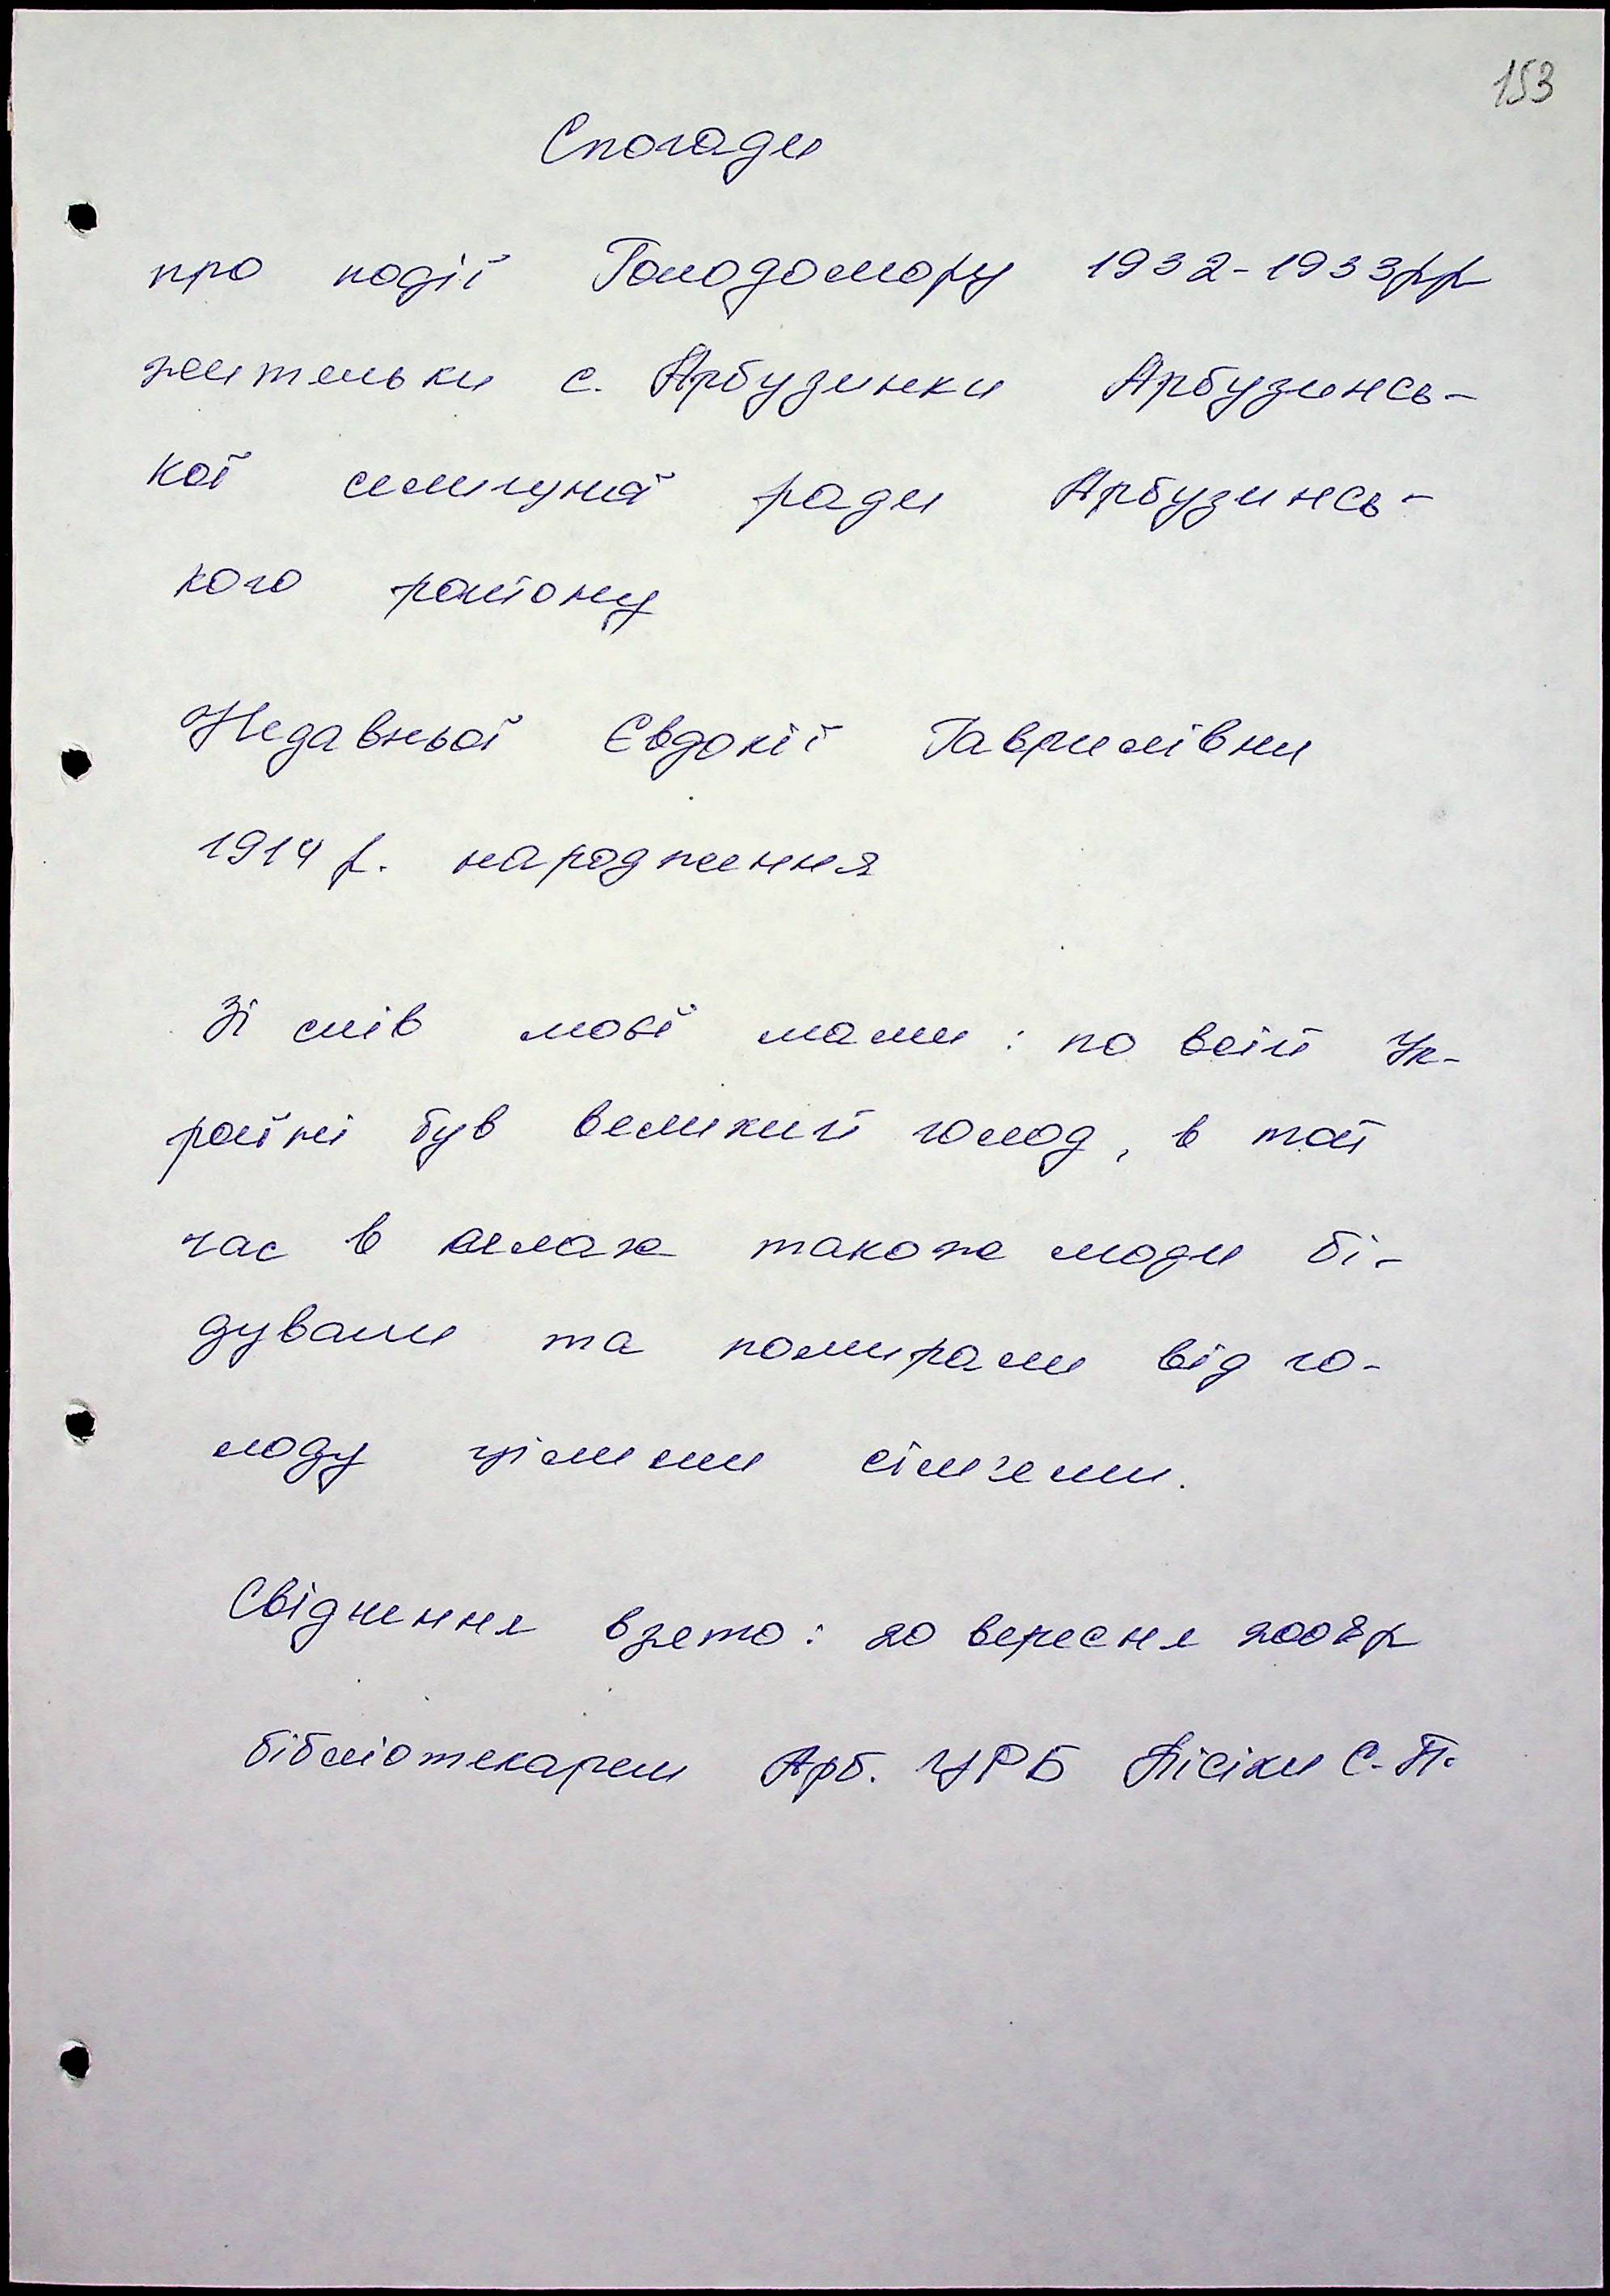 153
Спогади
про події Голодомору 1932-1933рр
жительки с. Арбузинки Арбузинсь-
кої селищної ради Арбузинсь-
кого району
Недавньої Євдокії Гаврилівни
1914 р. народження
Зі слів моєї мами: по всій Ук-
раїні був великий голод, в той
час в селах також люди бі-
дували та помирали від го-
лоду цілими сім'ями.
Свідчення взято: 20 вересня 2008р
бібліотекарем Арб. ЦРБ С.П.